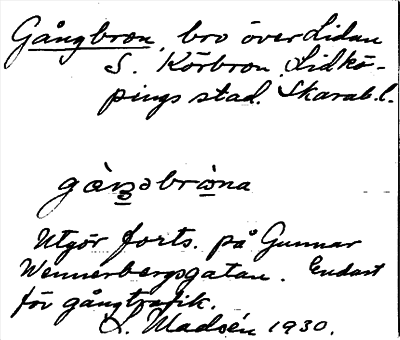 Gångbron, bro över Lidan
S. Körbron, Lidkö-
pings stad. Skarab.l.
Utgör forts. på Gunnar
Wennerbergsgatan. Endast
för gångtrafik.
L. Madsén 1930.